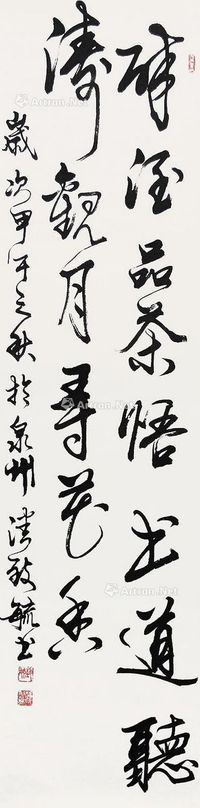 品茶悟出道聽
濤觀月尋花香
歲次甲午之秋於泉州 毓書
Artron.Net